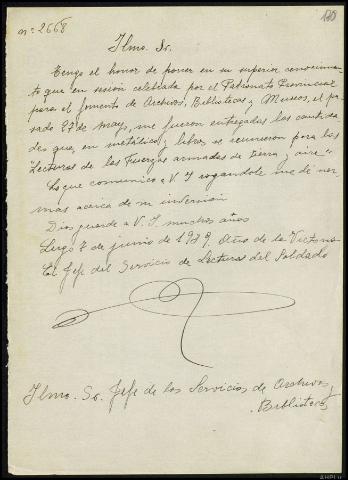 120
nº 2668
Ilmo. Sr.
Tengo el honor de poner en su superior conocimien-
to que en sesión celebrada por el Patronato Provincial
para el fomento de Archivos, Bibliotecas y Museos, el pa-
sado 27 de mayo, me fueron entregadas las cantida-
des que, en metálico y libros se reunieron para las
"Lecturas de las Fuerzas armadas de tierra y aire"
Lo que comunico a V. I rogandole me de nor-
mas acerca de su inversión
Dios guarde a V. I. muchos años
Lugo 7 de junio de 1939. Año de la Victoria
El Jefe del Servicio de Lecturas del Soldado
Ilmo. Sr. Jefe de los Servicios de Archivos y
Bibliotecas
AHPLU